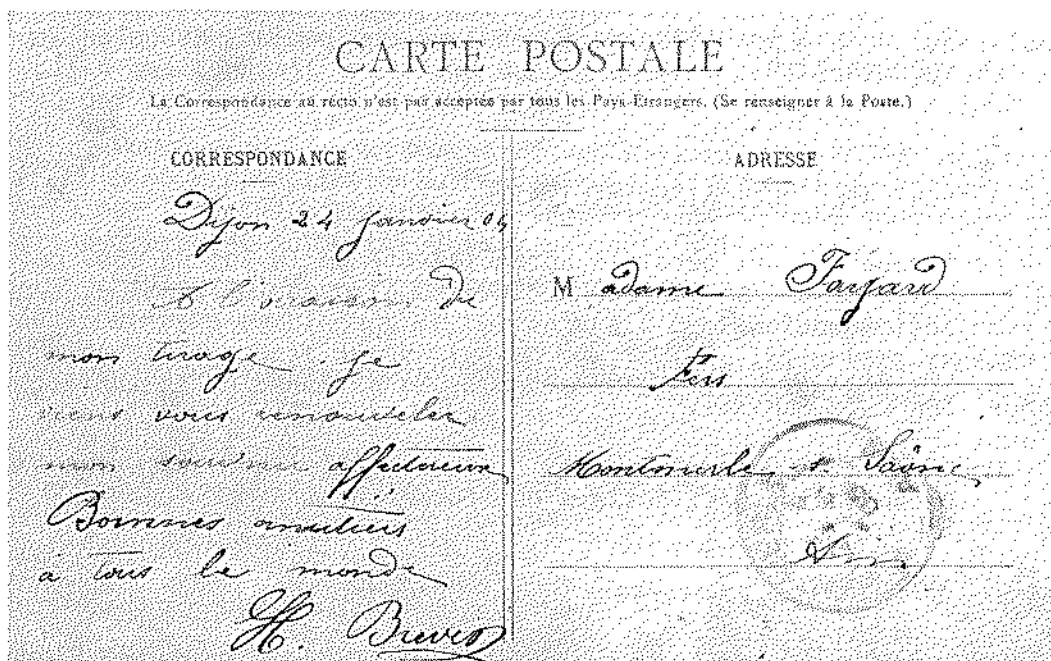 CARTE POSTALE
La Correspondance au recto n'est pas acceptée par tous les Pays Etrangers. (Se renseigner à la Poste.)
CORRESPONDANCE
Dijon 24 janvier 04
de
mon tirage je
viens vous renouveler
mon souvenir affectueux
Bonnes amitiés
à tous le monde
H.
ADRESSE
Madame Fayard
Montmerle s. Saône
Ain